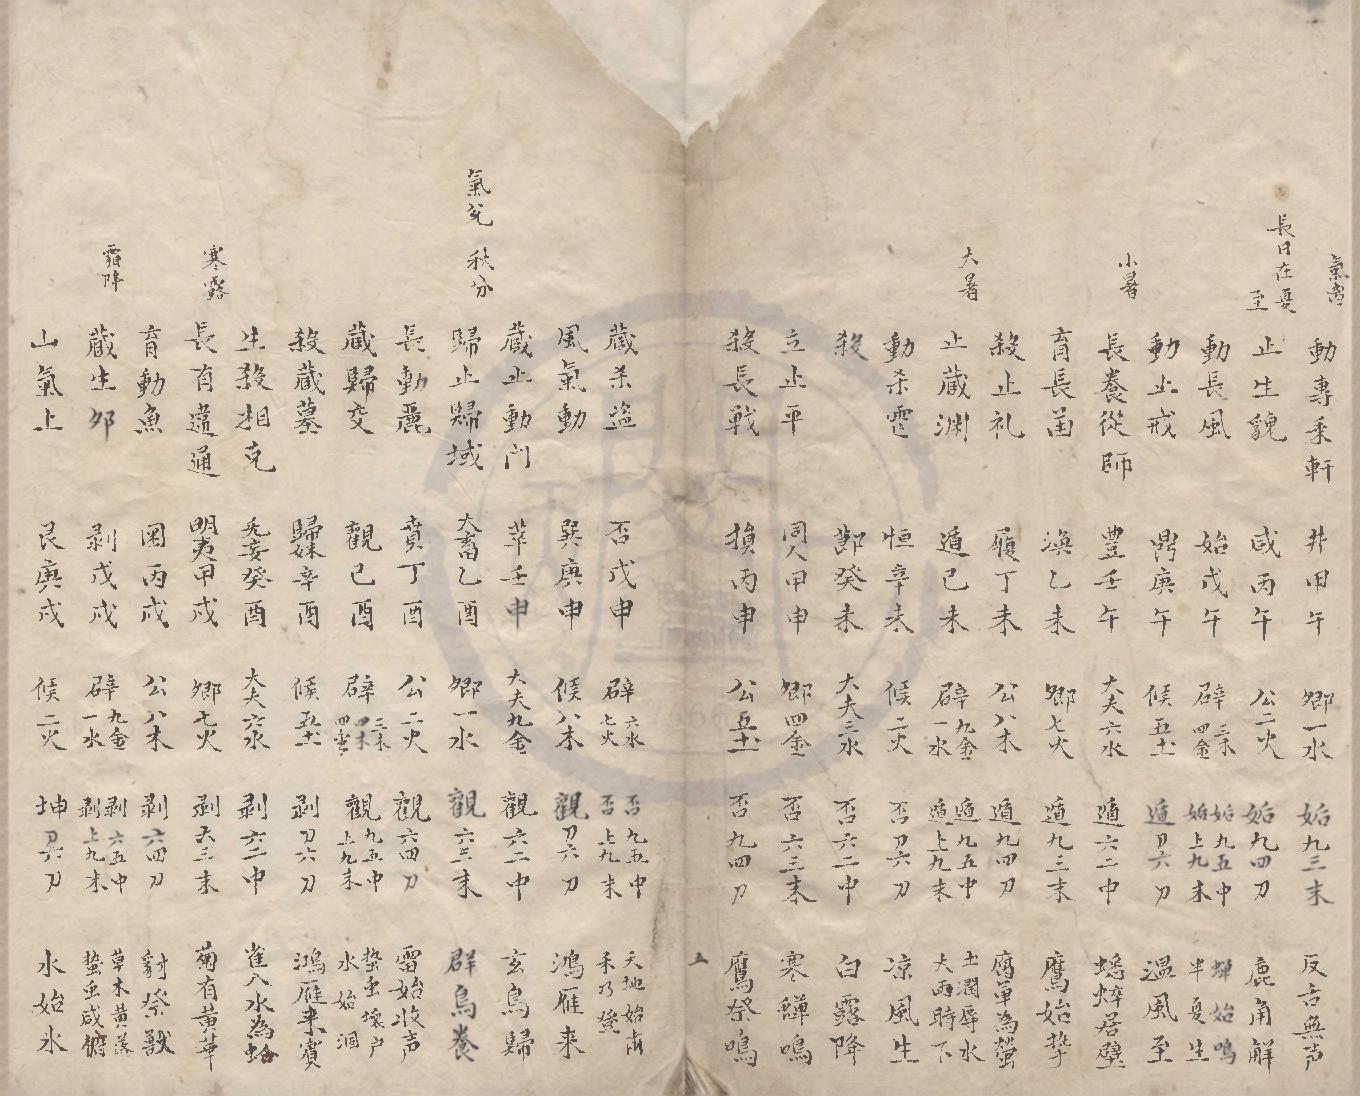 氣
動專乘軒 井甲午 卿一水 姤九三末 反舌無声
長日在夏至
止生貌 咸丙午 公二火 姤九四刀 鹿角解
動長風 始戊午 辟三木四金 姤九五中姤上九末 蟬始鳴半夏生
動止戒 鼎庚午 候五土 遁刀六刀 温風至
小暑
長養從師 豐壬午 大夫六水 遁六二中 蟋蟀居壁
育長 渙乙未 卿七火 遁九三末 鷹始摯
殺止礼 履丁未 公八木 遁九四刀 腐草為螢
大暑
止藏渊 遁己未 辟九金一水 遁九五中遁上九末 土潤辱水大雨時下
動杀 恒辛未 候二火 否刀六刀 凉風生
殺 癸未 大夫三水 否六二中 白露降
立止平 同人甲申 卿四金 否六三末 寒蟬鳴
殺長戦 損丙申 公五土 否九四刀 鷹祭鳴
五
藏杀盗 否戊申 辟六水七火 否九五中否上九末 天地始肅禾乃登
風氣動 巽庚申 候八木 觀刀六刀 鴻雁来
藏止動门 萃壬申 大夫九金 觀六二中 玄鳥歸
氣兑 秋分
歸止歸域 大畜乙酉 卿一水 觀六三末 群鳥養
長動麗 賁丁酉 公二火 觀六四刀 雷始收声
藏歸交 觀己酉 辟三木 觀九五中上九末 蟄虫壞户水始涸
殺藏墓 歸妹辛酉 候五土 剥刀六刀 鴻雁来賓
生殺相克 无妄癸酉 大夫六水 剥六二中 雀入水為蛤
寒露
長育違通 明夷甲戍 卿七火 剥六三末 菊有黄華
育動魚 困丙戍 公八木 剥六四刀 豺祭獸
霜降
藏生 剥戊戍 辟九金一水 剥六五中剥上九末 草木黄落蛰虫咸俯
山氣上 艮庚戍 候二火 坤刀六刀 水始氷